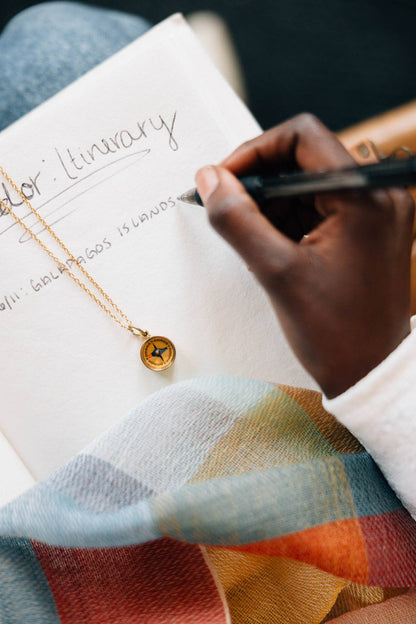 dor: Itinerary
6/11: GALAPAGOS ISLANDS